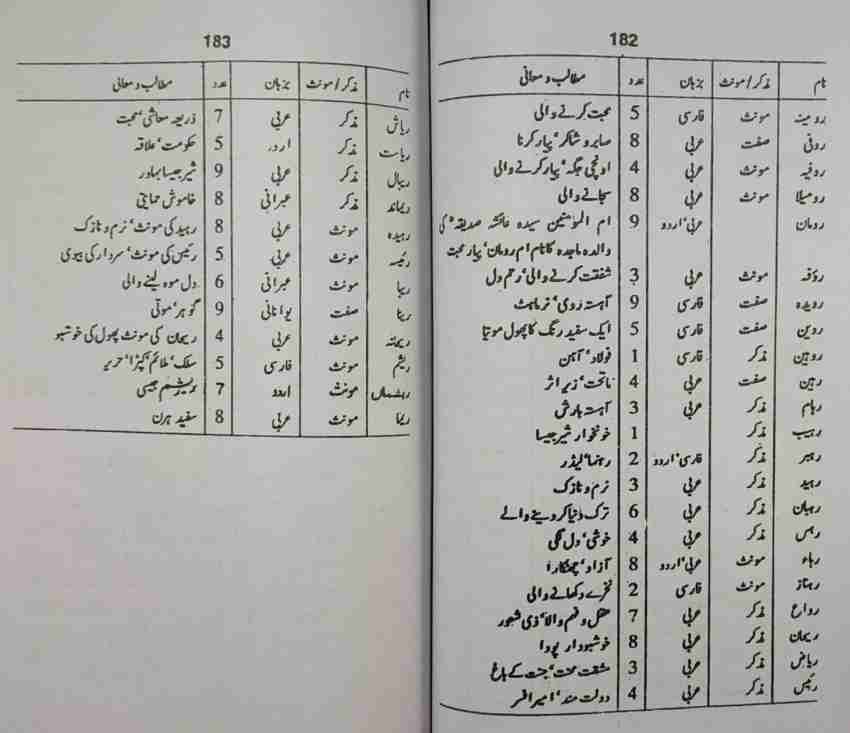 182
نام مذکر/مونث بزبان عدد مطالب و معانی
رومینہ مونث فارسی 5 محبت کرنے والی
روفی صفت عربی 8 صابر و شاکر‘ پیار کرنا
روفیہ مونث عربی 4 اونچی جگہ‘ پیار کرنے والی
رومیلا مونث عربی 8 سجانے والی
رومان عربی‘ اردو 9 ام المومنین سیدہ عائشہ صدیقہؓ کی
والدہ ماجدہ کا نام ام رومان‘ پیار محبت
روفہ مونث عربی 3 شفقت کرنے والی‘ رحم دل
رویدہ صفت فارسی 9 آہستہ روی‘ نرماہٹ
روین صفت فارسی 5 ایک سفید رنگ کا پھول موتیا
روہین مذکر فارسی 1 فولاد‘ آہن
رہین صفت عربی 4 ماتحت‘ زیر اثر
رہام مذکر عربی 3 آہستہ بارش
رہیب مذکر 1 خونخوار شیر جیسا
رہبر مذکر فارسی‘ اردو 2 رہنما‘ لیڈر
رہید مذکر عربی 3 نرم و نازک
رہبان مذکر عربی 6 ترک دنیا کر دینے والے
رہس مذکر عربی 4 خوشی‘ دل لگی
رہاء مونث عربی‘ اردو 8 آزاد‘ چھٹکارا
رہناز مونث فارسی 2 نخرے دکھانے والی
رواع مذکر عربی 7 عقل و فہم والا‘ ذی شعور
ریحان مذکر عربی 8 خوشبودار پودا
ریاض مذکر عربی 3 مشقت محنت‘ جنت کے باغ
رئیس مذکر عربی 4 دولت مند‘ امیر افسر
183
نام مذکر/مونث بزبان عدد مطالب و معانی
ریاش مذکر عربی 7 ذریعہ معاشی‘ محبت
ریاست مذکر اردو 5 حکومت‘ علاقہ
ریبال مذکر عربی 9 شیر جیسا بہادر
ریماند مذکر عبرانی 8 خاموش حمایتی
رہیدہ مونث عربی 8 رہید کی مونث‘ نرم و نازک
رئیسہ مونث عربی 5 رئیس کی مونث‘ سردار کی بیوی
ریبا مونث عبرانی 6 دل موہ لینے والی
ریتا صفت یونانی 9 گوہر‘ موتی
ریحانہ مونث عربی 4 ریحان کی مونث پھول کی خوشبو
ریشم مونث فارسی 5 سلک‘ ملائم‘ کپڑا‘ حریر
ریشماں مونث اردو 7 ریشم جیسی
ریما مونث عربی 8 سفید ہرن